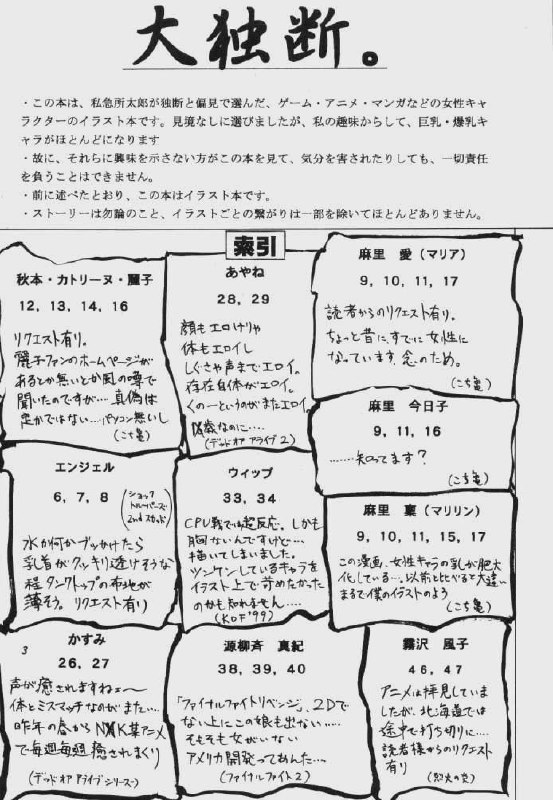 大独断。
・この本は、私急所太郎が独断と偏見で選んだ、ゲーム・アニメ・マンガなどの女性キャ
ラクターのイラスト本です。見境なしに選びましたが、私の趣味からして、巨乳・爆乳キ
ャラがほとんどになります
・故に、それらに興味を示さない方がこの本を見て、気分を害されたりしても、一切責任
を負うことはできません。
・前に述べたとおり、この本はイラスト本です。
・ストーリーは勿論のこと、イラストごとの繋がりは一部を除いてほとんどありません。
索引
秋本・カトリーヌ・麗子
12, 13, 14, 16
リクエスト有り。
麗子ファンのホームページが
あるとか無いとか風の噂で
聞いたのですが…真偽は
定かではない…パソコン無いし
(こち亀)
あやね
28, 29
(デッド オア アライブ2)
麻里 愛(マリア)
9, 10, 11, 17
読者からのリクエスト有り。
ちょっと昔に、すでに女性に
なっています。念のため。
(こち亀)
麻里 今日子
9, 11, 16
………知ってます?
(こち亀)
エンジェル
6, 7, 8
水か何かブッかけたら
乳首がクッキリ透けそうな
程タンクトップの布地が
薄そう。リクエスト有り
ウィップ
33, 34
CPU戦では超反応。しかも
胸ないんですけど…
描いてしまいました。
ツンケンしているキャラを
イラスト上で
のかも知れません……
(KOF'99)
麻里 稟(マリリン)
9, 10, 11, 15, 17
この漫画、女性キャラの乳が肥大
化している…。以前と比べると大違い
まるで僕のイラストのよう
(こち亀)
3
かすみ
26, 27
声が癒されますねェ〜
体とミスマッチなのがまた…
昨年の春からN K某アニメ
で毎週毎週癒されまくり
(デッド オア アライブシリーズ)
源柳斉 真紀
38, 39, 40
「ファイナルファイトリベンジ」、2Dで
ない上にこの娘も出ない……
そもそも女がいない
アメリカ開発ってあんた…
(ファイナルファイト2)
霧沢 風子
46, 47
アニメは拝見していま
したが、北海道では
途中で打ち切りに……
読者様からのリクエスト
有り
(烈火の炎)